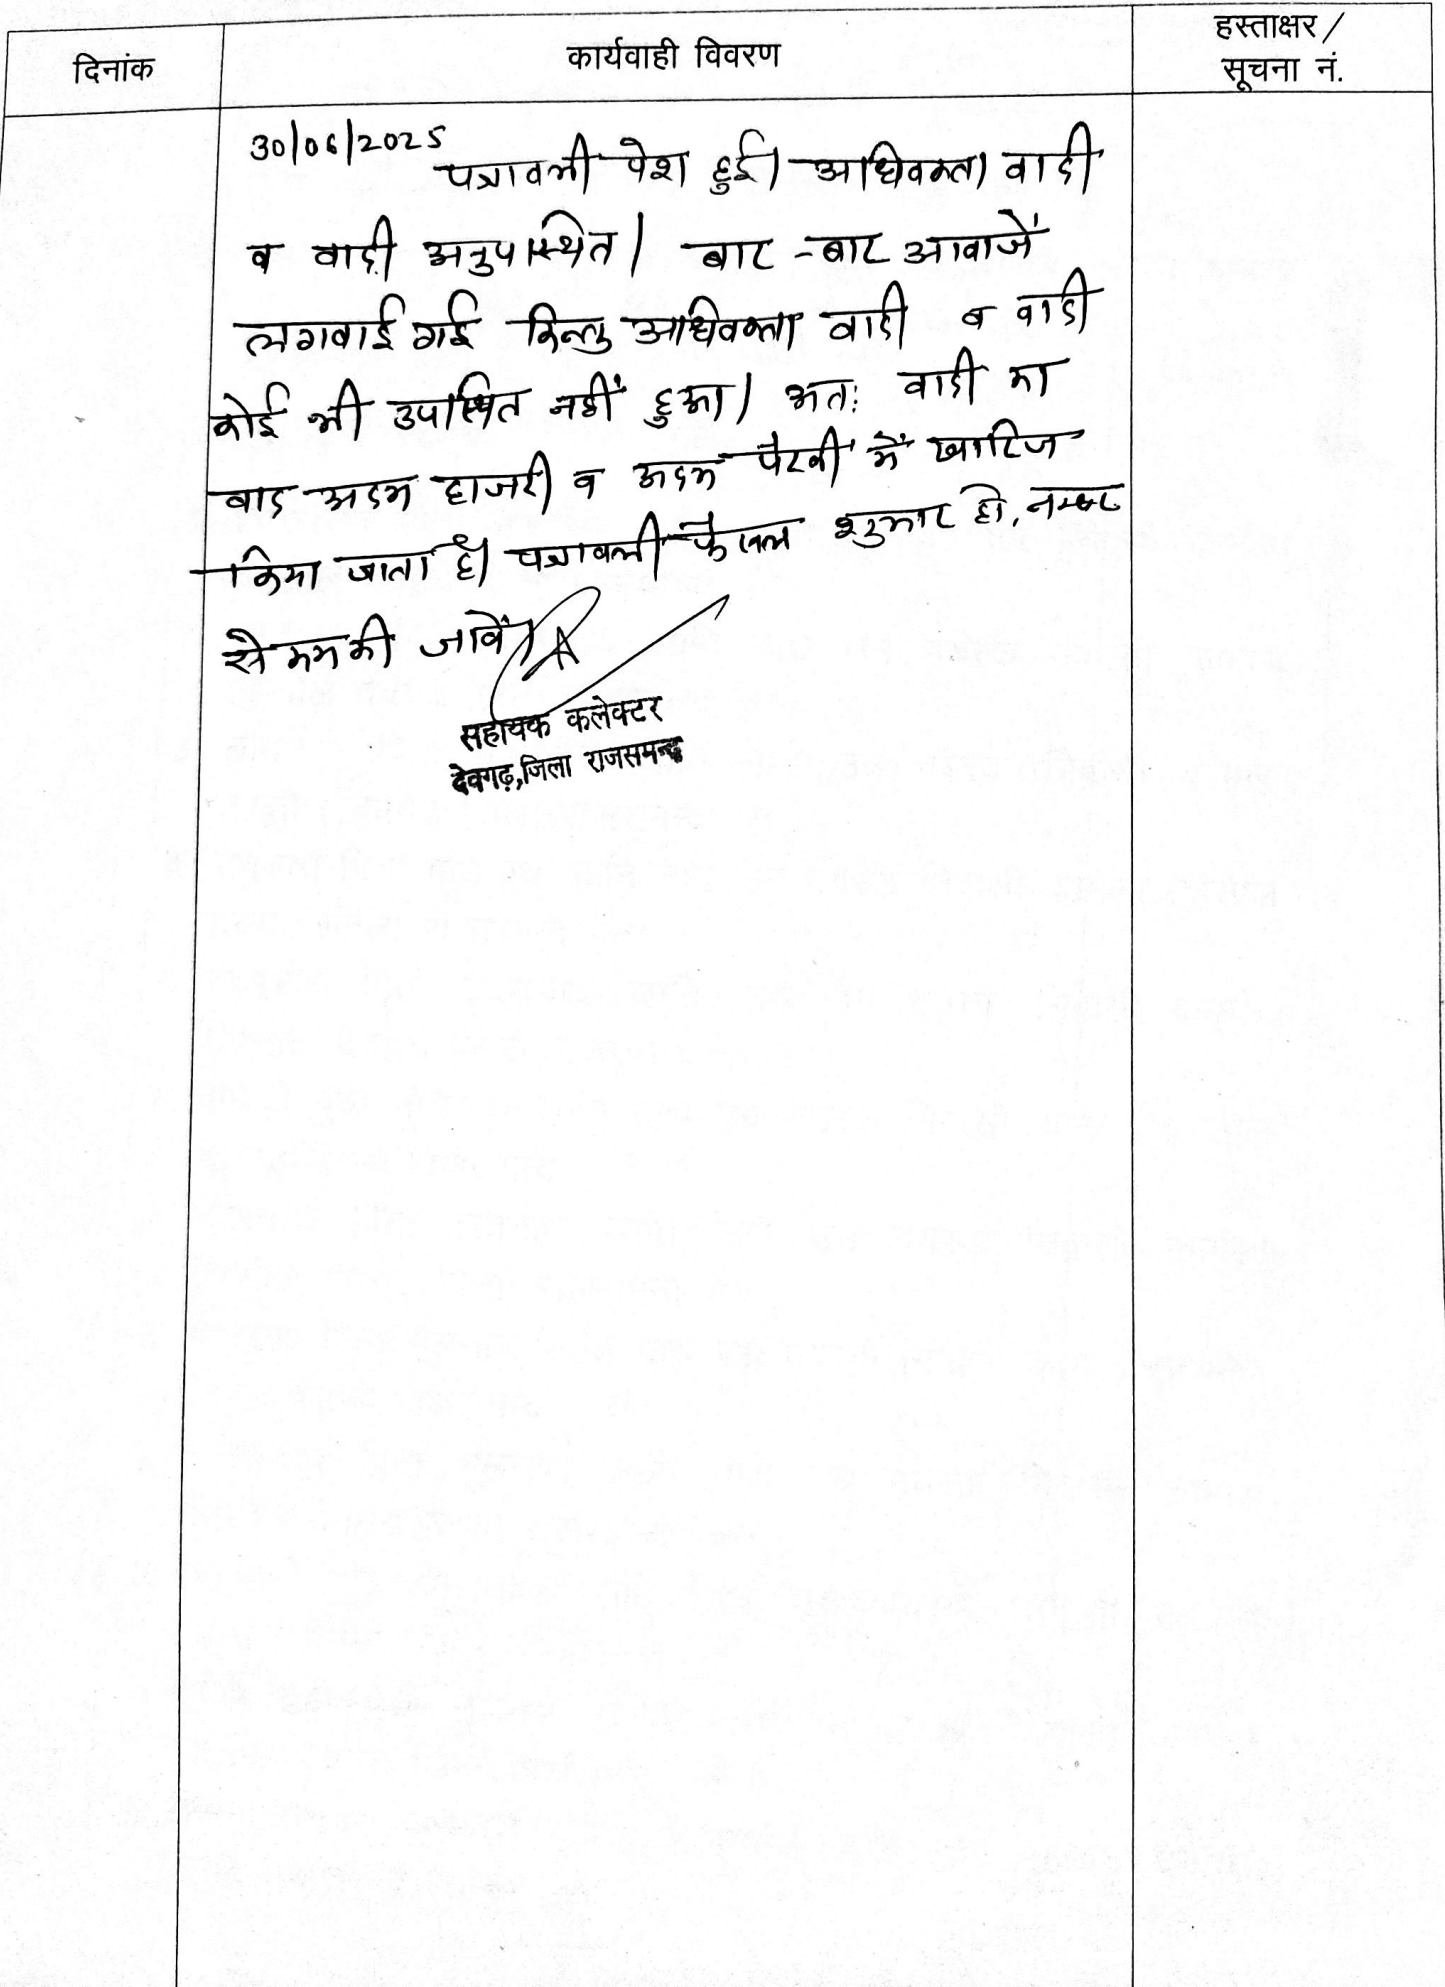 दिनांक
कार्यवाही विवरण
हस्ताक्षर /
सूचना नं.
30/06/2025
पत्रावली पेश हुई। अधिवक्ता वादी
व वादी अनुपस्थित। बार-बार आवाजें
लगवाई गई किन्तु अधिवक्ता वादी व वादी
कोई भी उपस्थित नहीं हुआ। अतः वादी का
वाद अदम हाजरी व अदम पैरवी में खारिज
किया जाता है। पत्रावली फैसल शुमार हो, नम्बर
से कम की जावें।
सहायक कलेक्टर
देवगढ़,जिला राजसमन्द